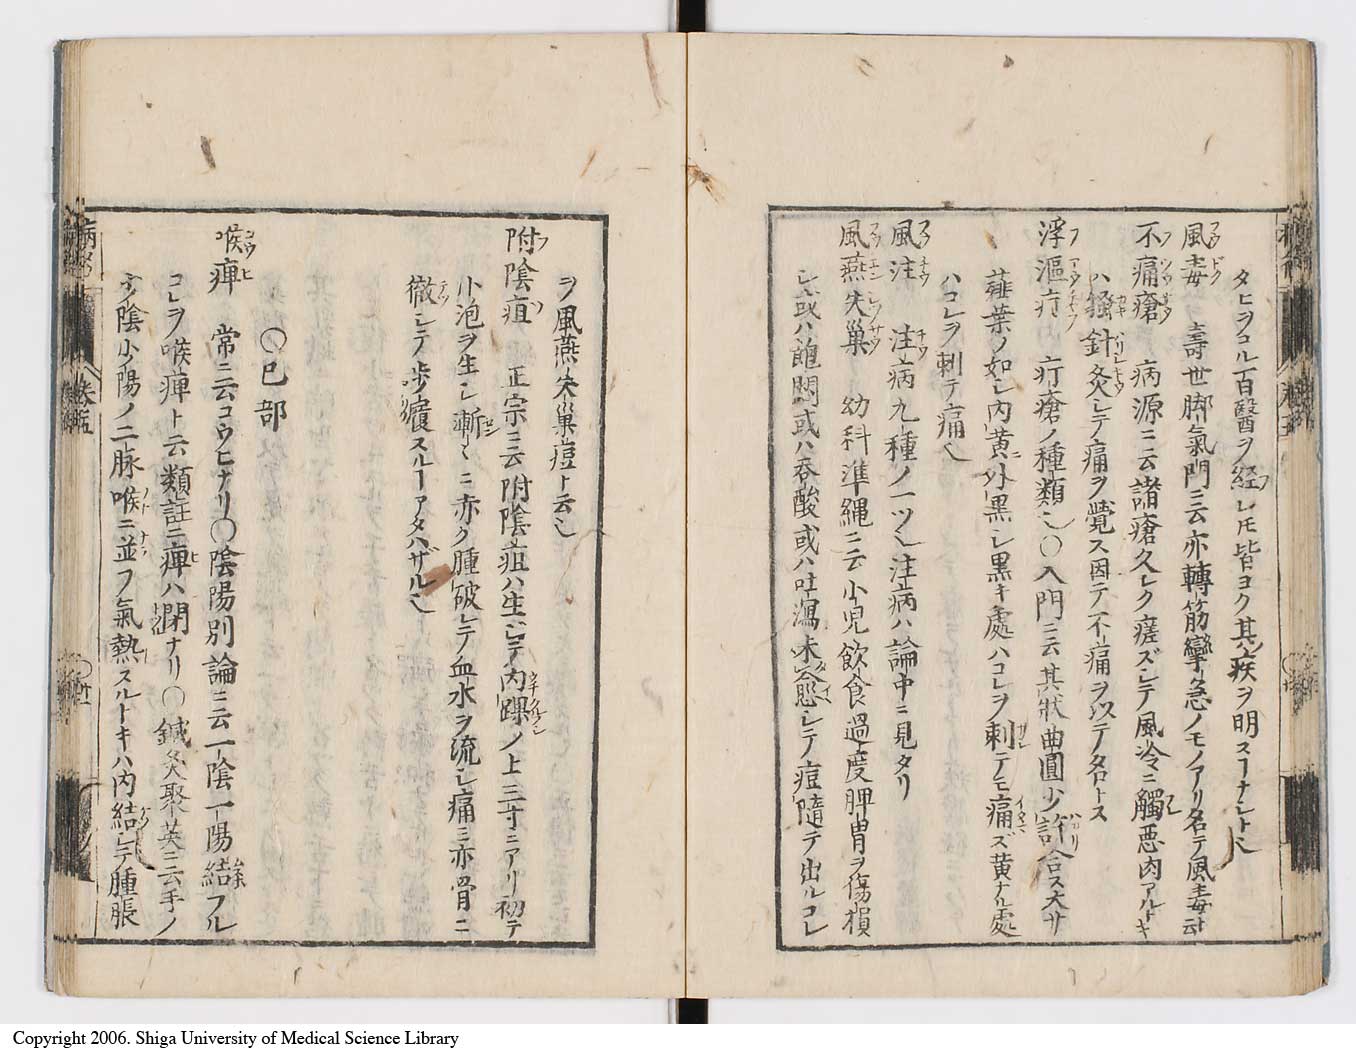 タヒヲコル百醫ヲ經レ𪜈皆ヨク其疾ヲ明スーナシト乄
風毒 壽世脚氣門ニ云亦轉筋攣急ノモノアリ名テ風毒ト云
不痛瘡 病源ニ云諸瘡久シク瘥ズシテ風冷ニ觸惡肉アルトキ
ハ搔針灸シテ痛ヲ覺ス因テ不痛ヲ以テ名トス
浮漚疔 疔瘡ノ種類也〇入門ニ云其狀曲圓少許合ス大サ
薤葉ノ如シ内黄外黒シ黒キ處ハコレヲ刺テモ痛ズ黄ナル處
ハコレヲ刺テ痛ム
風注 注病九種ノ一ツ也注病ハ論中ニ見タリ
風燕失巢 幼科準縄ニ云小児飲食過度脾胃ヲ傷損
シ或ハ飽悶或ハ呑酸或ハ吐瀉未愈シテ痘隨テ出ルコレ
ヲ風燕失巢痘ト云也
附陰疽 正宗ニ云附陰疽ハ生ジテ内踝ノ上三寸ニアリ初テ
小泡ヲ生シ漸々ニ赤ク腫破レテ血水ヲ流シ痛ミ赤骨ニ
徹シテ歩履スルーアタハザル也
〇巳部
喉痺 常ニ云コウヒナリ〇陰陽別論ニ云一陰一陽結フル
コレヲ喉痺ト云類註ニ痺ハ閉ナリ〇鍼灸聚英ニ云手ノ
少陰少陽ノ二脉喉ニ並フ氣熱スルトキハ内結シテ腫脹
卷五
Copyright 2006. Shiga University of Medical Science Library